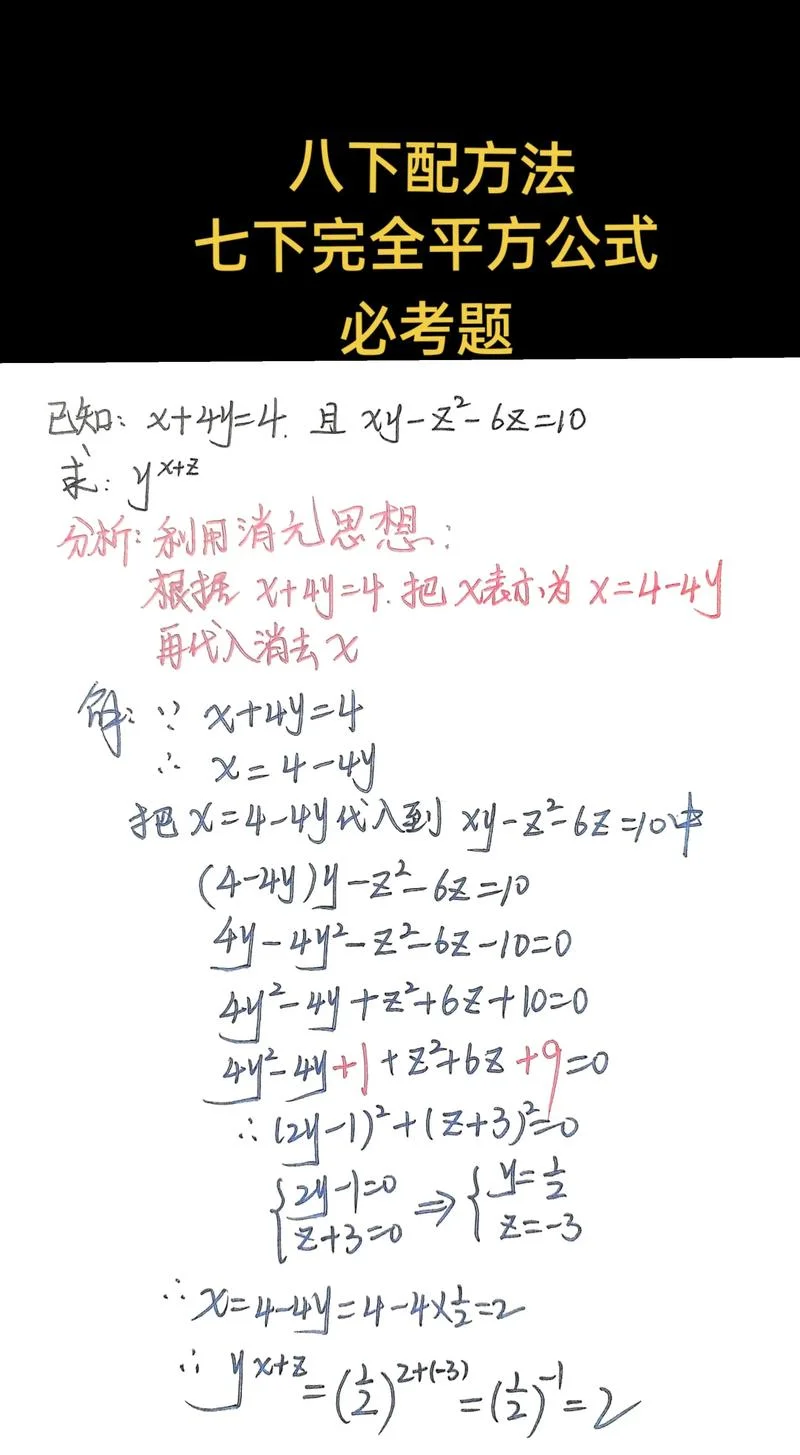 八下配方法
七下完全平方公式
必考题
已知: x+4y=4. 且 xy-z²-6z=10
求: y^{x+z}
分析: 利用消元思想:
根据 x+4y=4. 把 x表示为 x=4-4y
再代入消去 x
解: ∵ x+4y=4
∴ x=4-4y
把 x=4-4y代入到 xy-z²-6z=10中
(4-4y)y-z²-6z=10
4y-4y²-z²-6z-10=0
4y²-4y+z²+6z+10=0
4y²-4y+1+z²+6z+9=0
∴ (2y-1)²+(z+3)²=0
{2y-1=0 ⇒ {y=1/2
z+3=0 z=-3
∴ x=4-4y=4-4×1/2=2
∴ y^{x+z}=(1/2)^{2+(-3)}=(1/2)^{-1}=2